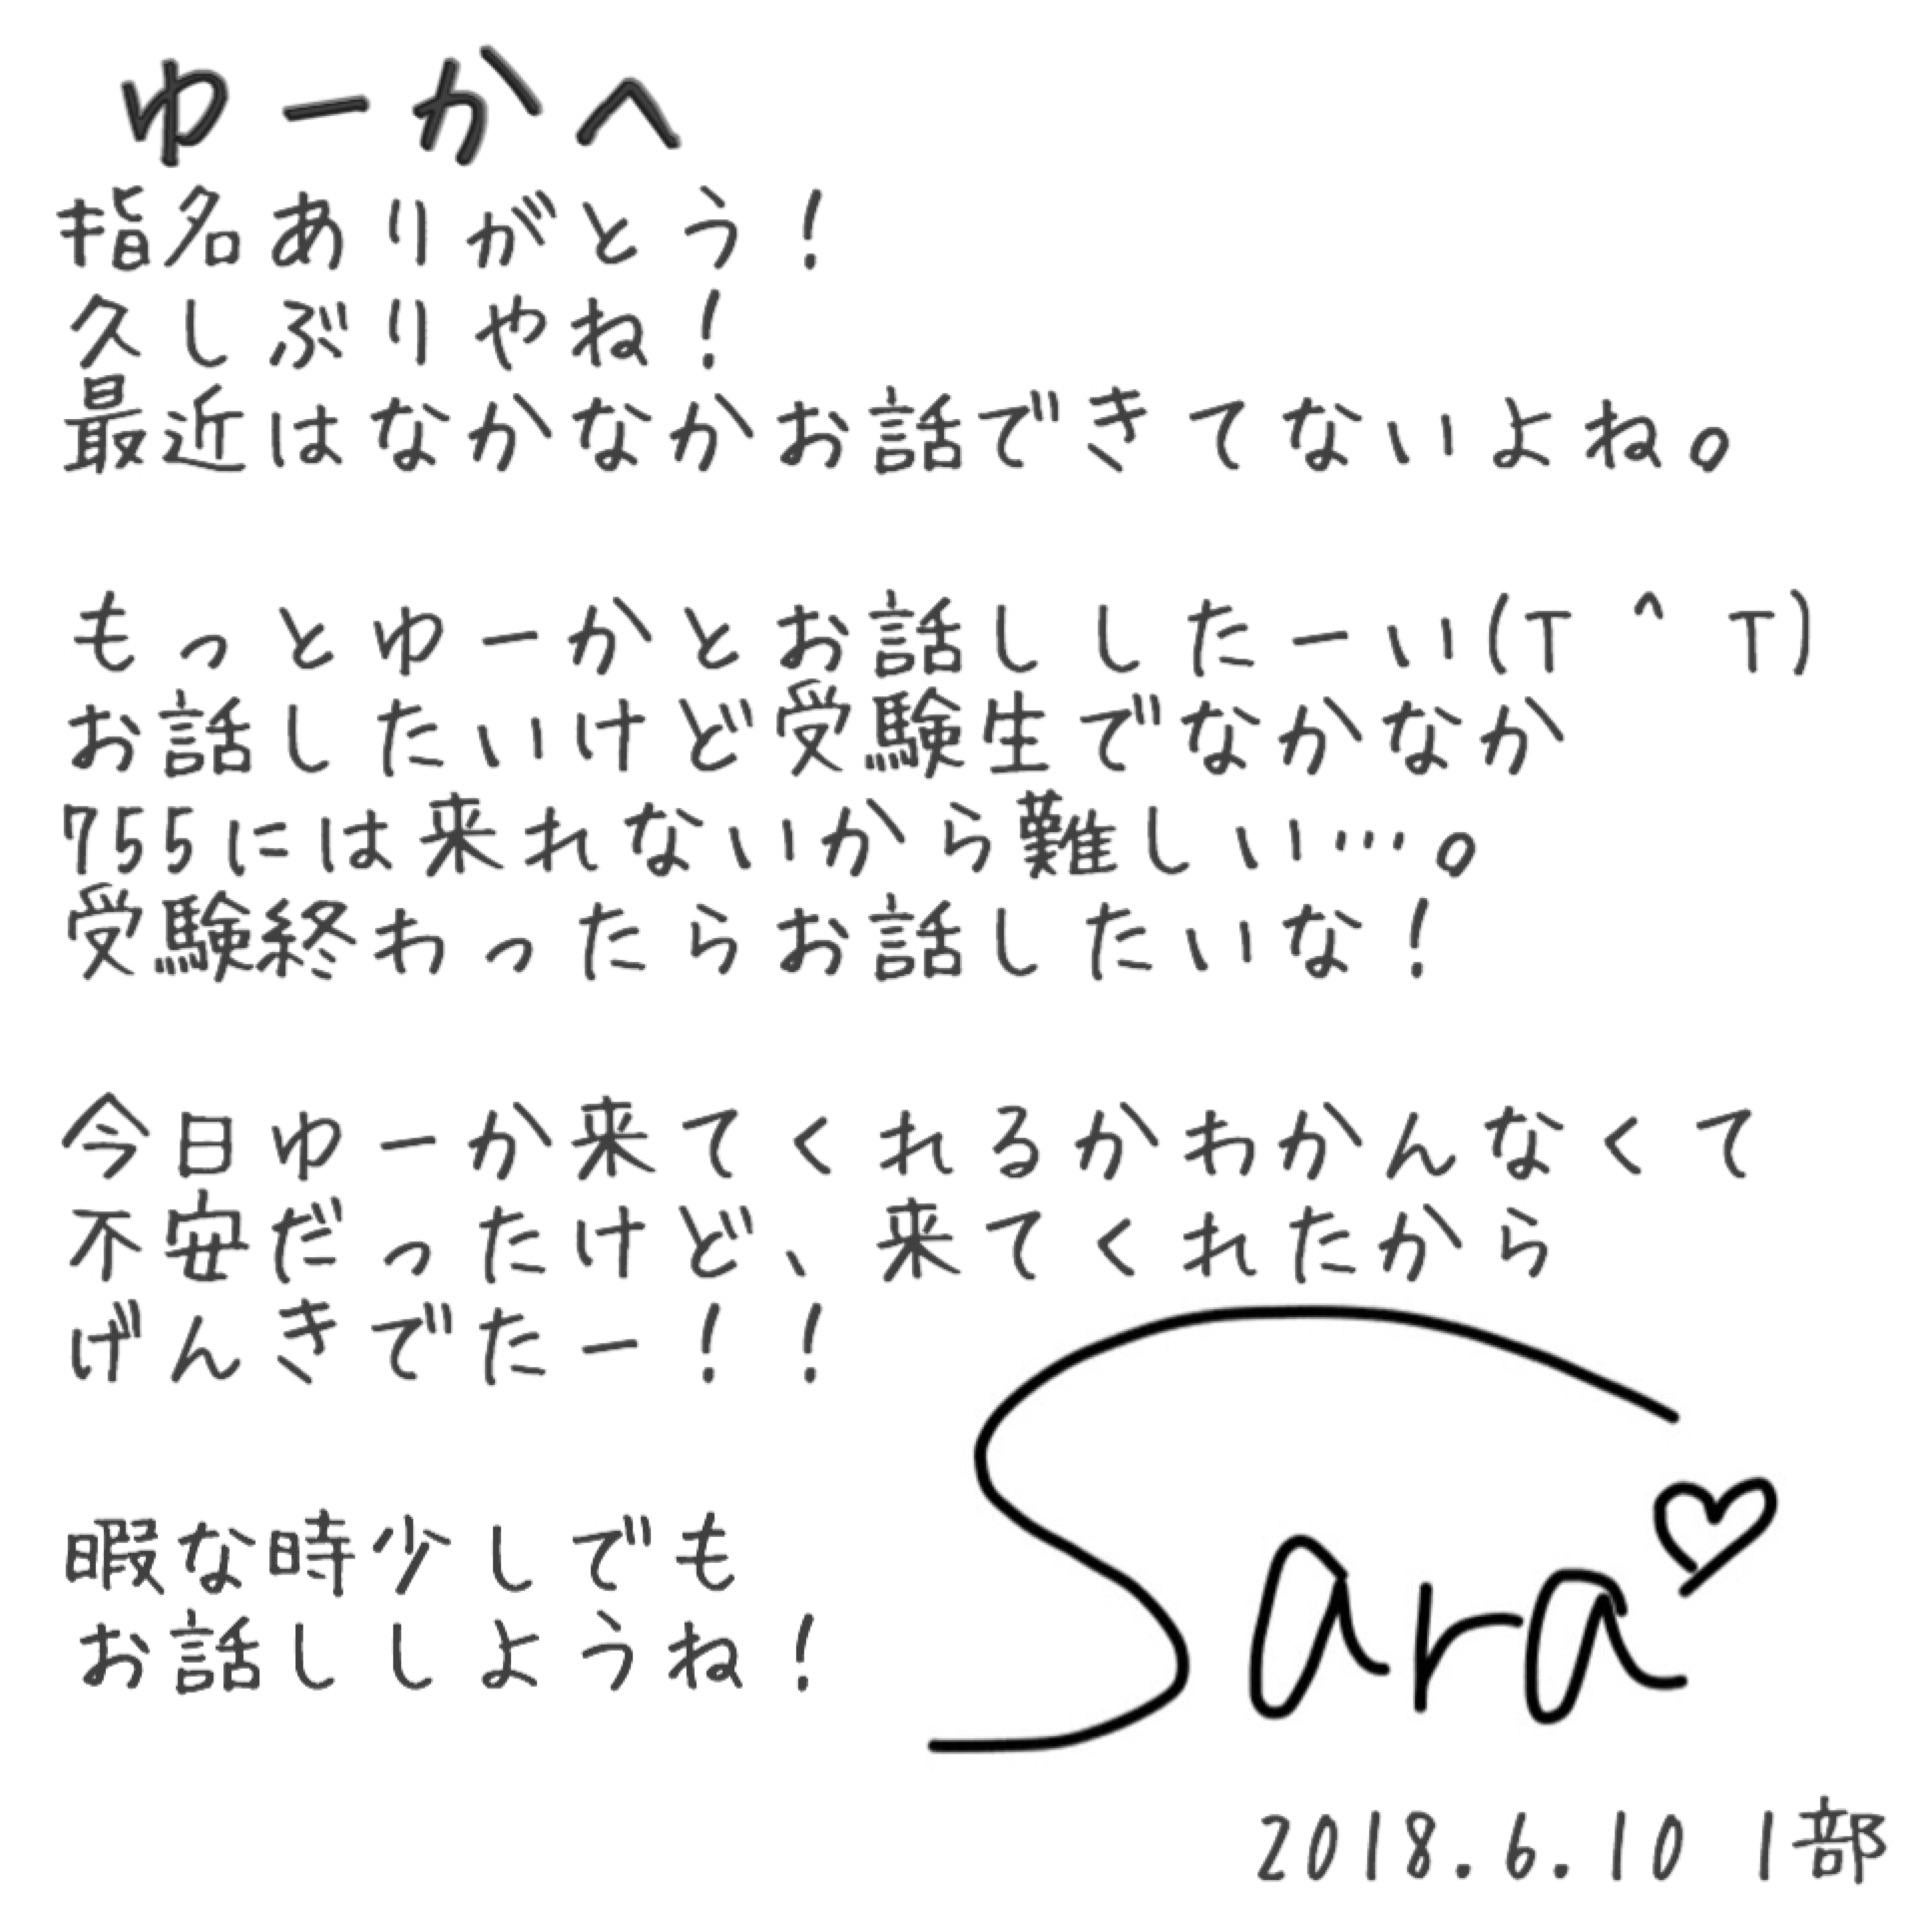 ゆーかへ
指名ありがとう！
久しぶりやね！
最近はなかなかお話できてないよね。
もっとゆーかとお話ししたーい(T ^ T)
お話したいけど受験生でなかなか
755には来れないから難しい…。
受験終わったらお話したいな！
今日ゆーか来てくれるかわかんなくて
不安だったけど、来てくれたから
げんきでたー！！
暇な時少しでも
お話ししようね！
Sara♡
2018.6.10 1部